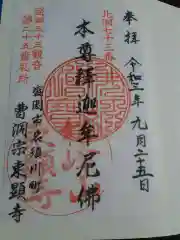 奉拝 令和二年九月二十五日
北洞七十三番
本尊 釋迦牟尼佛
盛岡三十三観音
第二十五番札所
盛岡市名須川町
曹洞宗 東顕寺